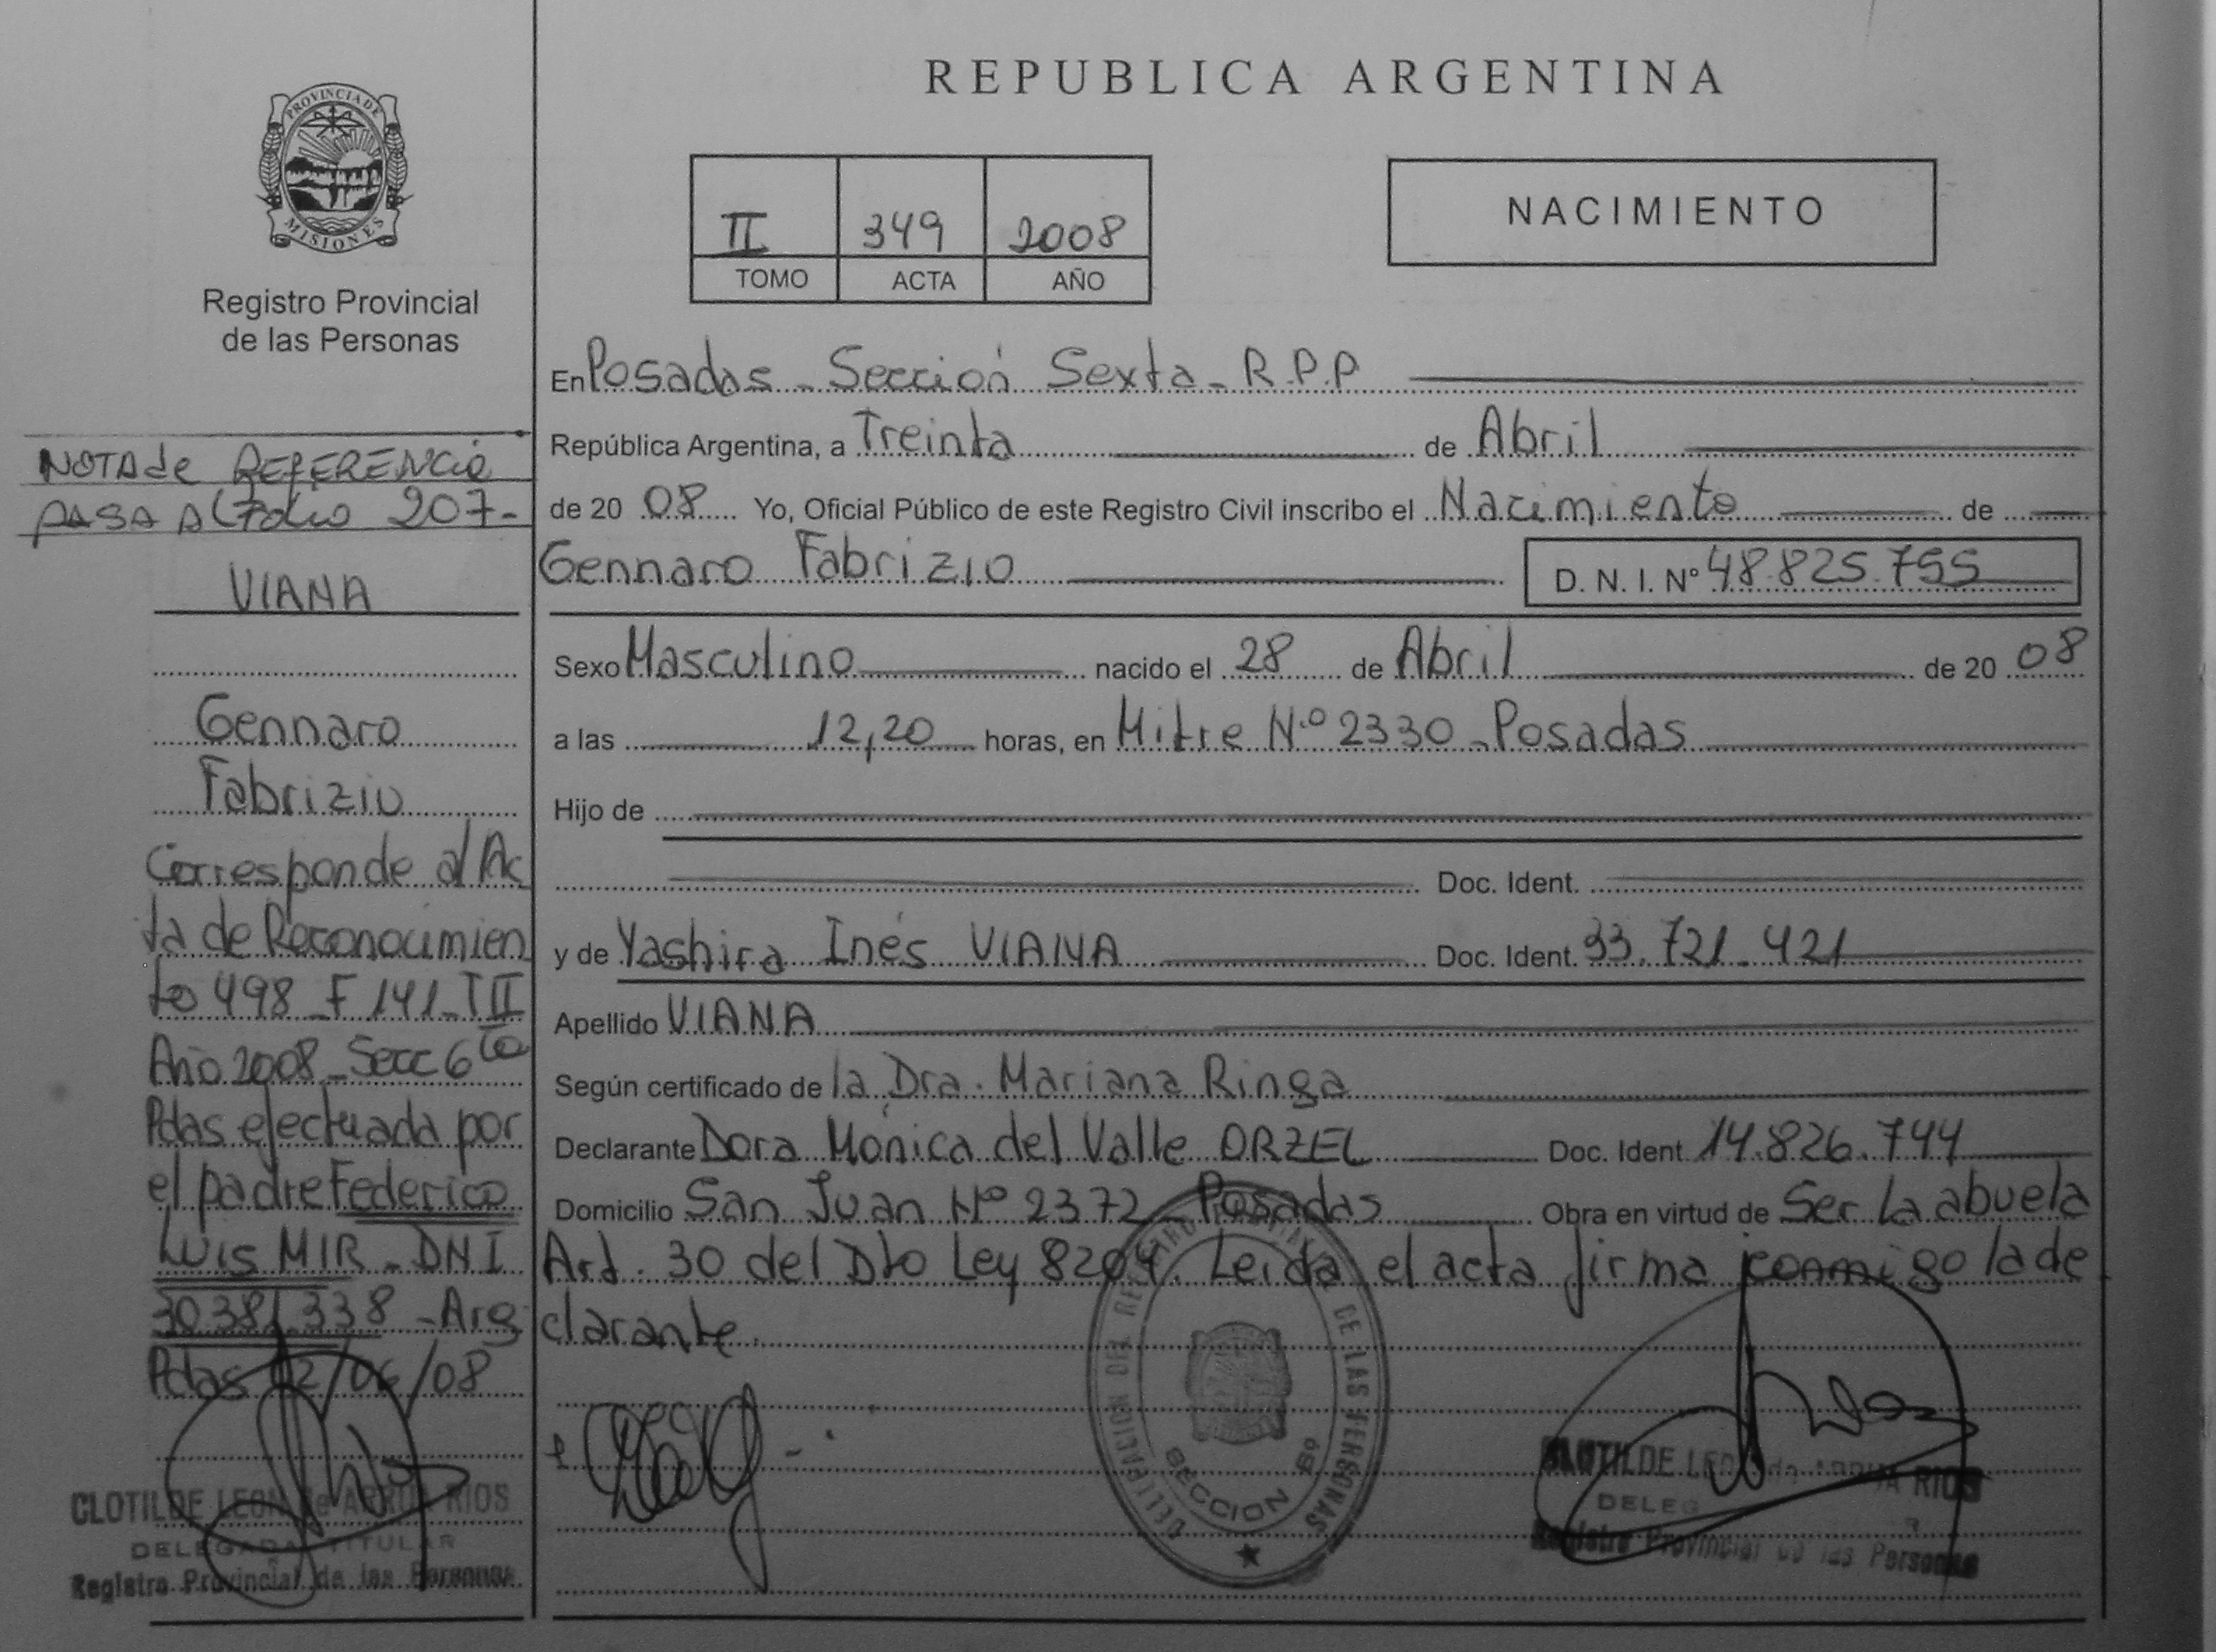 PROVINCIA DE
MISIONES
Registro Provincial
de las Personas
NOTA de REFERENCIA
PASA AL Folio 207-
VIANA
Gennaro
Fabrizio
Corresponde al Ac
ta de Reconocimien
to 498 _ F 141 _ T II
Año 2008 _ Secc 6ta
Pdas efectuada por
el padre Federico
Luis MIR _ DNI
30.381.338 - Arg
Pdas 12/06/08
CLOTILDE LEON de ARRUA RIOS
DELEGADA TITULAR
Registro Provincial de las Personas
REPUBLICA ARGENTINA
II 349 2008
TOMO ACTA AÑO
NACIMIENTO
En Posadas _ Sección Sexta _ R.P.P
República Argentina, a Treinta de Abril
de 20 08 Yo, Oficial Público de este Registro Civil inscribo el Nacimiento de
Gennaro Fabrizio D. N. I. Nº 48.825.755
Sexo Masculino nacido el 28 de Abril de 20 08
a las 12,20 horas, en Mitre Nº 2330 _ Posadas
Hijo de
Doc. Ident.
y de Yashira Inés VIANA Doc. Ident. 33.721.421
Apellido VIANA
Según certificado de la Dra. Mariana Ringa
Declarante Dora Mónica del Valle ORZEL Doc. Ident 14.826.744
Domicilio San Juan Nº 2372 _ Posadas Obra en virtud de Ser la abuela
Art. 30 del Dto Ley 8204. Leida el acta firma conmigo la de
clarante.
DELEGACION DEL REGISTRO PROVINCIAL DE LAS PERSONAS
SECCION 6º
CLOTILDE LEON de ARRUA RIOS
DELEG
Registro Provincial de las Personas